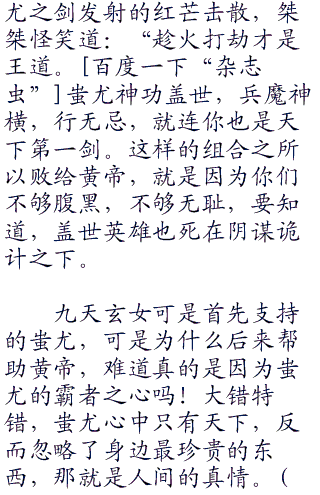 尤之剑发射的红芒击散，桀
桀怪笑道：“趁火打劫才是
王道。[百度一下“杂志
虫”]蚩尤神功盖世，兵魔神
横，行无忌，就连你也是天
下第一剑。这样的组合之所
以败给黄帝，就是因为你们
不够腹黑，不够无耻，要知
道，盖世英雄也死在阴谋诡
计之下。
九天玄女可是首先支持
的蚩尤，可是为什么后来帮
助黄帝，难道真的是因为蚩
尤的霸者之心吗！大错特
错，蚩尤心中只有天下，反
而忽略了身边最珍贵的东
西，那就是人间的真情。（